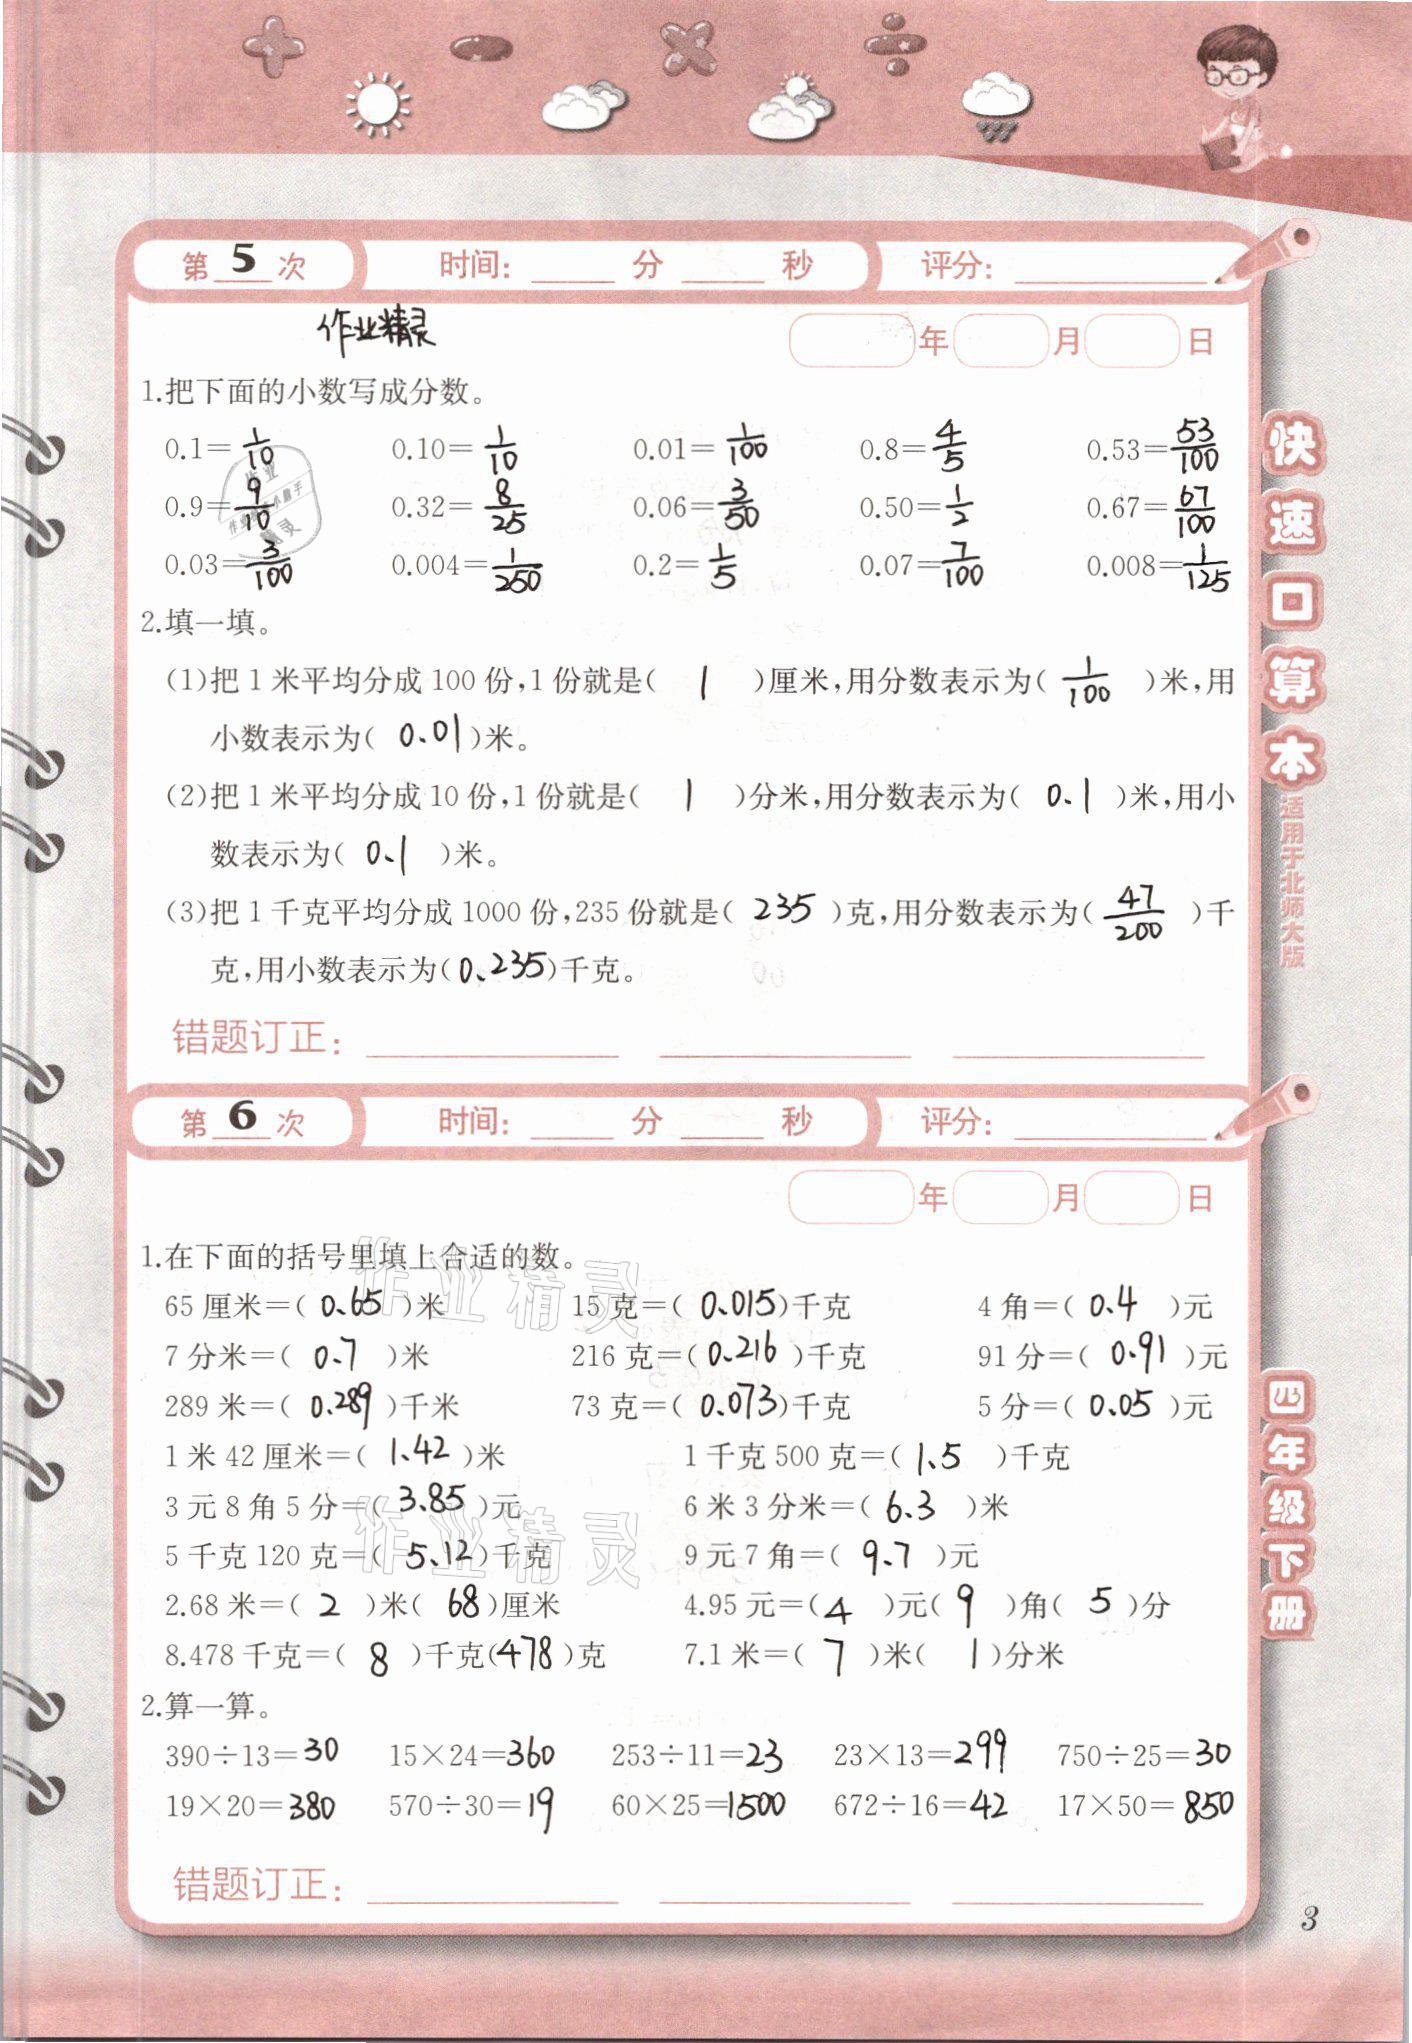 第 5 次 时间: ____ 分 ____ 秒 评分: ________
作业精灵 年 月 日
1.把下面的小数写成分数。
0.1=1/10 0.10=1/10 0.01=1/100 0.8=4/5 0.53=53/100
0.9=9/10 0.32=8/25 0.06=3/50 0.50=1/2 0.67=67/100
0.03=3/100 0.004=1/250 0.2=1/5 0.07=7/100 0.008=1/125
2.填一填。
(1)把 1 米平均分成 100 份,1 份就是( 1 )厘米,用分数表示为( 1/100 )米,用
小数表示为( 0.01 )米。
(2)把 1 米平均分成 10 份,1 份就是( 1 )分米,用分数表示为( 0.1 )米,用小
数表示为( 0.1 )米。
(3)把 1 千克平均分成 1000 份,235 份就是( 235 )克,用分数表示为( 47/200 )千
克,用小数表示为( 0.235 )千克。
错题订正: ________ ________ ________
第 6 次 时间: ____ 分 ____ 秒 评分: ________
年 月 日
1.在下面的括号里填上合适的数。
65 厘米=( 0.65 )米 15 克=( 0.015 )千克 4 角=( 0.4 )元
7 分米=( 0.7 )米 216 克=( 0.216 )千克 91 分=( 0.91 )元
289 米=( 0.289 )千米 73 克=( 0.073 )千克 5 分=( 0.05 )元
1 米 42 厘米=( 1.42 )米 1 千克 500 克=( 1.5 )千克
3 元 8 角 5 分=( 3.85 )元 6 米 3 分米=( 6.3 )米
5 千克 120 克=( 5.12 )千克 9 元 7 角=( 9.7 )元
2.68 米=( 2 )米( 68 )厘米 4.95 元=( 4 )元( 9 )角( 5 )分
8.478 千克=( 8 )千克( 478 )克 7.1 米=( 7 )米( 1 )分米
2.算一算。
390÷13=30 15×24=360 253÷11=23 23×13=299 750÷25=30
19×20=380 570÷30=19 60×25=1500 672÷16=42 17×50=850
错题订正: ________ ________ ________
快速口算本
适用于北师大版
四年级下册
3
作业精灵
作业精灵